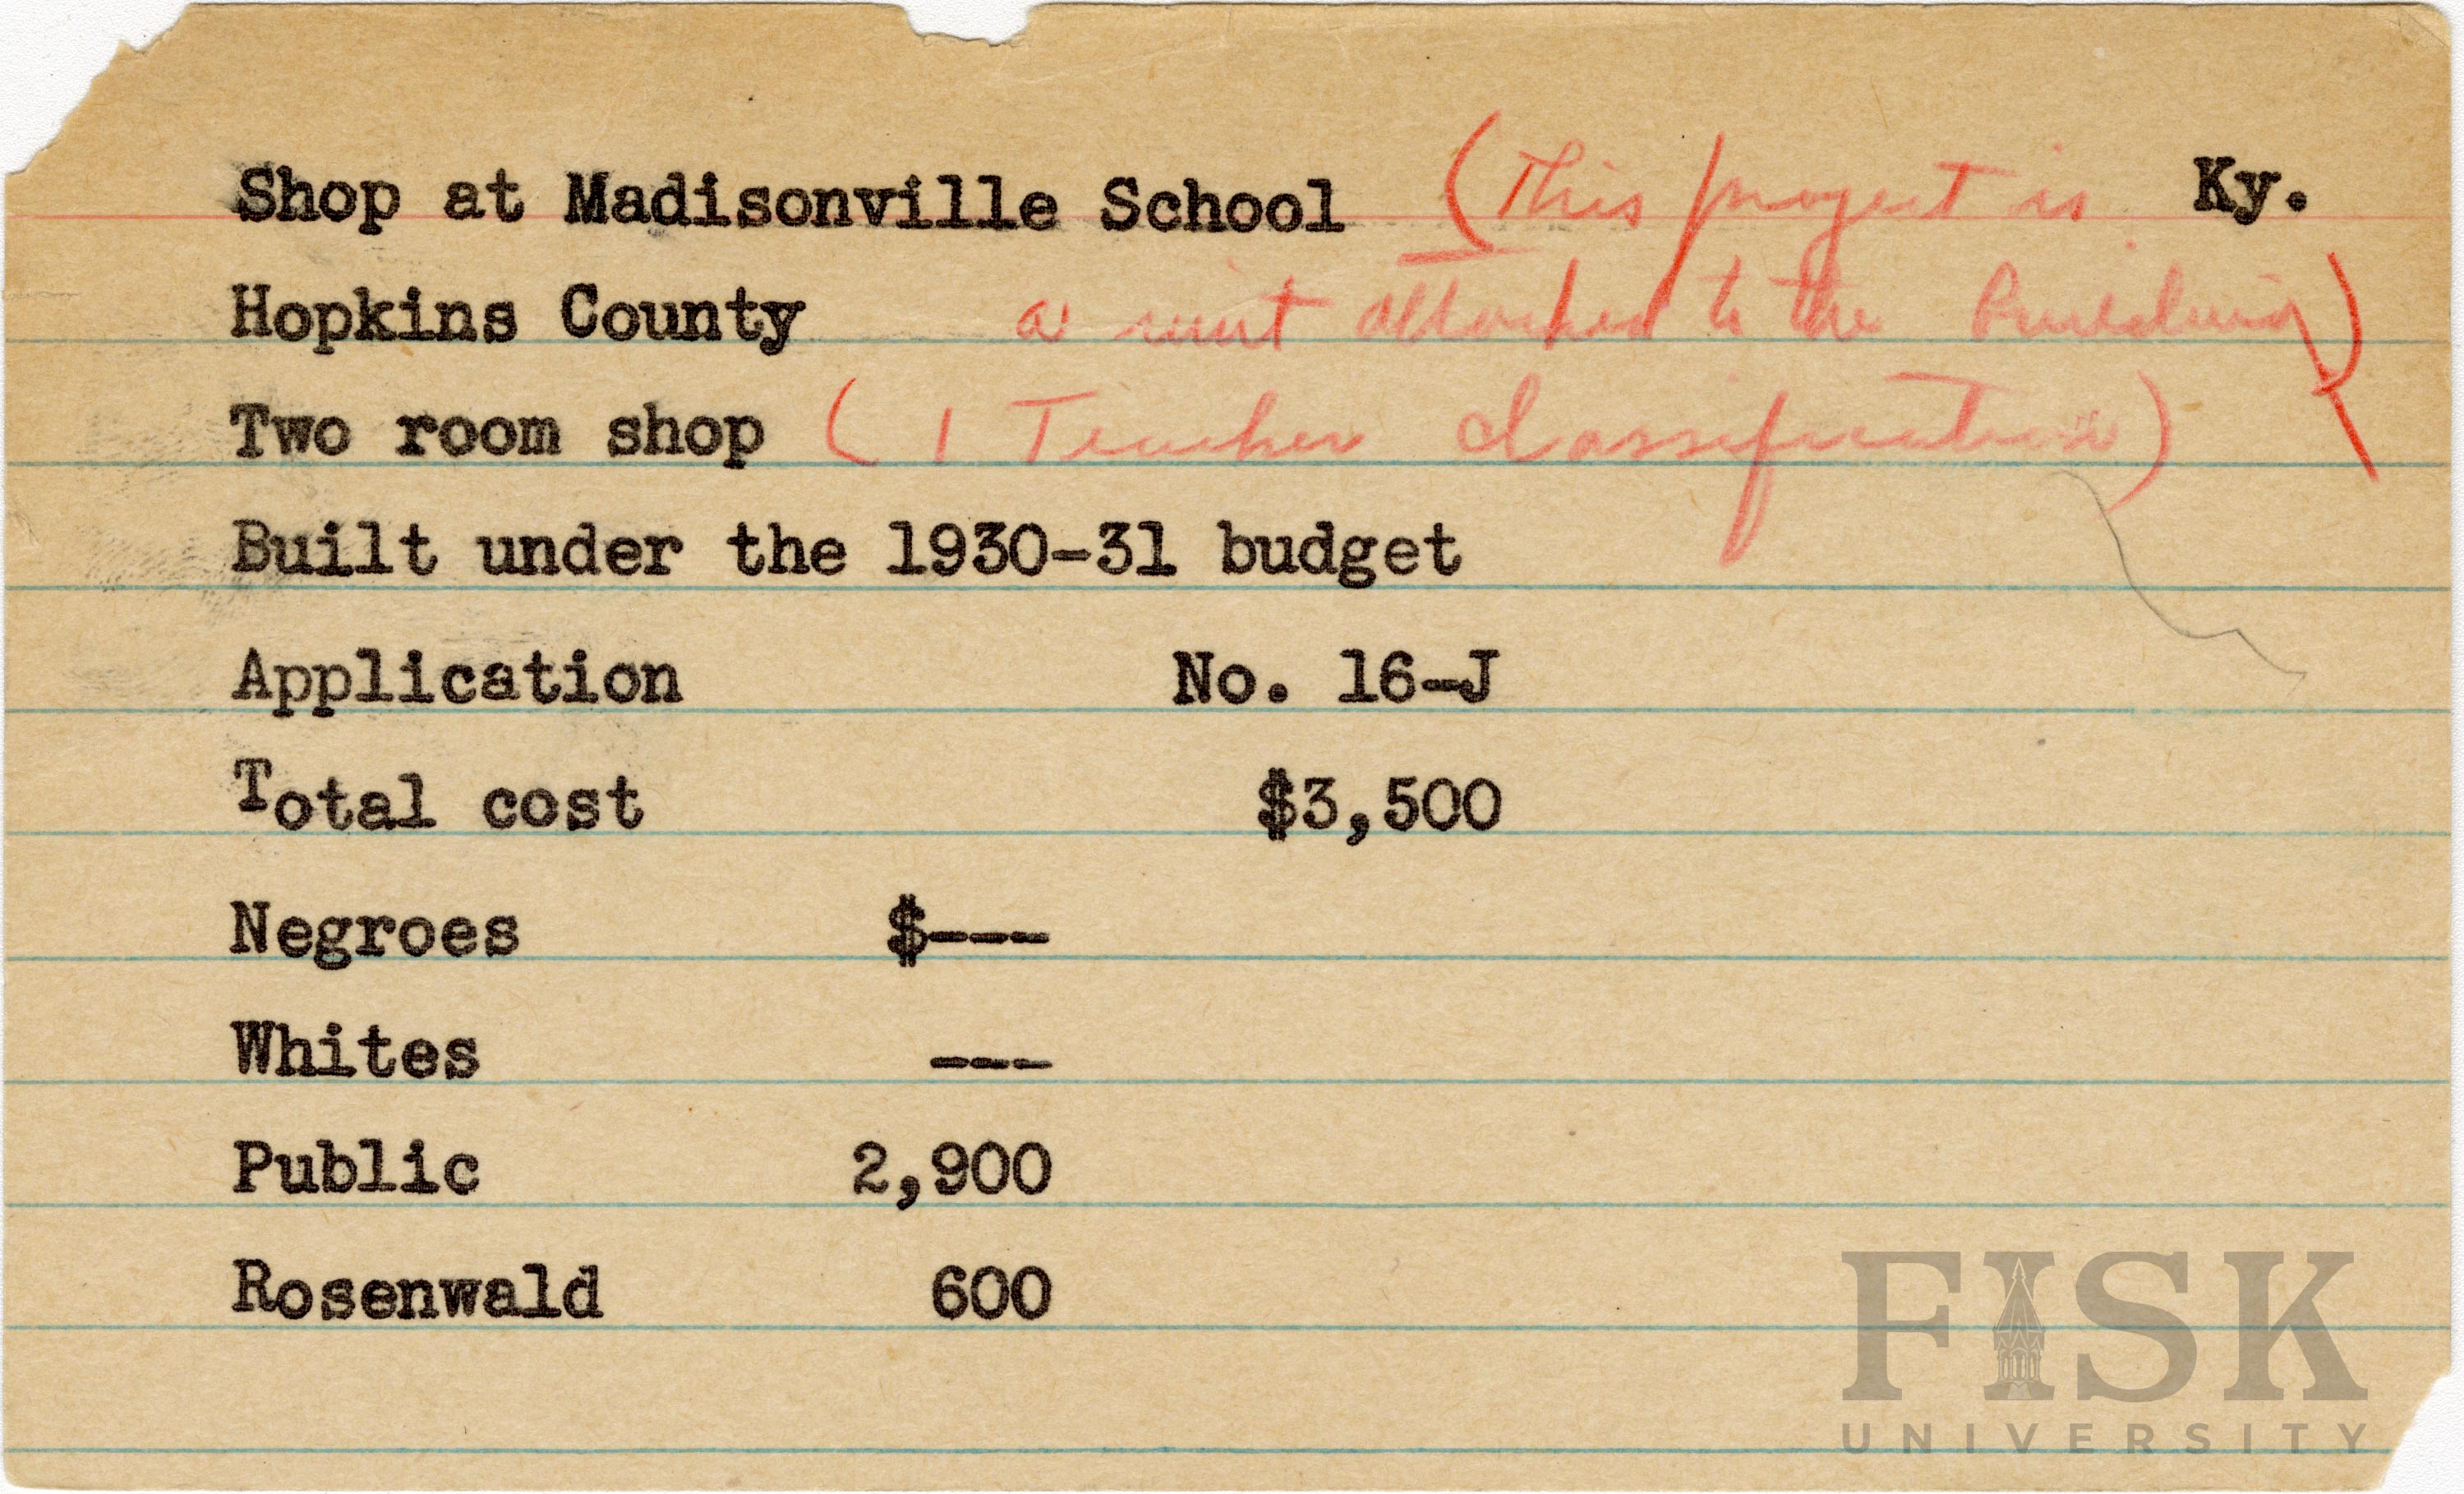 Shop at Madisonville School (This project is Ky.
Hopkins County a unit attached to the Building)
Two room shop (1 Teacher Classification)
Built under the 1930-31 budget
Application No. 16-J
Total cost $3,500
Negroes $---
Whites ---
Public 2,900
Rosenwald 600
FISK
UNIVERSITY